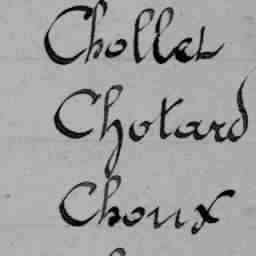 Chollet
Chotard
Choux